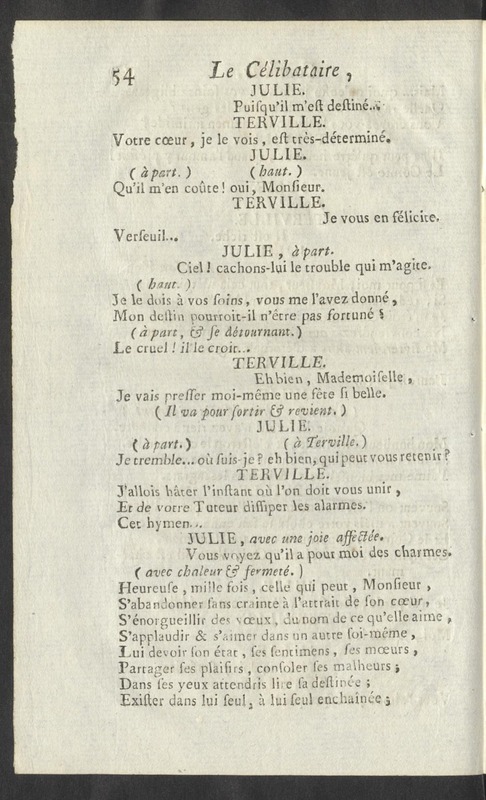 54 Le Célibataire,
JULIE.
Puiſqu'il m'eſt deſtiné...
TERVILLE.
Votre cœur, je le vois, eſt très-déterminé.
JULIE.
( à part. ) ( haut. )
Qu'il m'en coûte! oui, Monſieur.
TERVILLE.
Je vous en félicite.
Verſeuil...
JULIE, à part.
Ciel! cachons-lui le trouble qui m'agite.
( haut. )
Je le dois à vos ſoins, vous me l'avez donné,
Mon deſtin pourroit-il n'être pas fortuné?
( à part, & ſe détournant. )
Le cruel! il le croit...
TERVILLE.
Eh bien, Mademoiſelle,
Je vais preſſer moi-même une fête ſi belle.
( Il va pour ſortir & revient. )
JULIE.
( à part. ) ( à Terville. )
Je tremble... où ſuis-je? eh bien, qui peut vous retenir?
TERVILLE.
J'allois hâter l'inſtant où l'on doit vous unir,
Et de votre Tuteur diſſiper les alarmes.
Cet hymen...
JULIE, avec une joie affectée.
Vous voyez qu'il a pour moi des charmes.
( avec chaleur & fermeté. )
Heureuſe, mille fois, celle qui peut, Monſieur,
S'abandonner ſans crainte à l'attrait de ſon cœur,
S'énorgueillir des vœux, du nom de ce qu'elle aime,
S'applaudir & s'aimer dans un autre ſoi-même,
Lui devoir ſon état, ſes ſentimens, ſes mœurs,
Partager ſes plaiſirs, conſoler ſes malheurs;
Dans ſes yeux attendris lire ſa deſtinée;
Exiſter dans lui ſeul, à lui ſeul enchaînée;